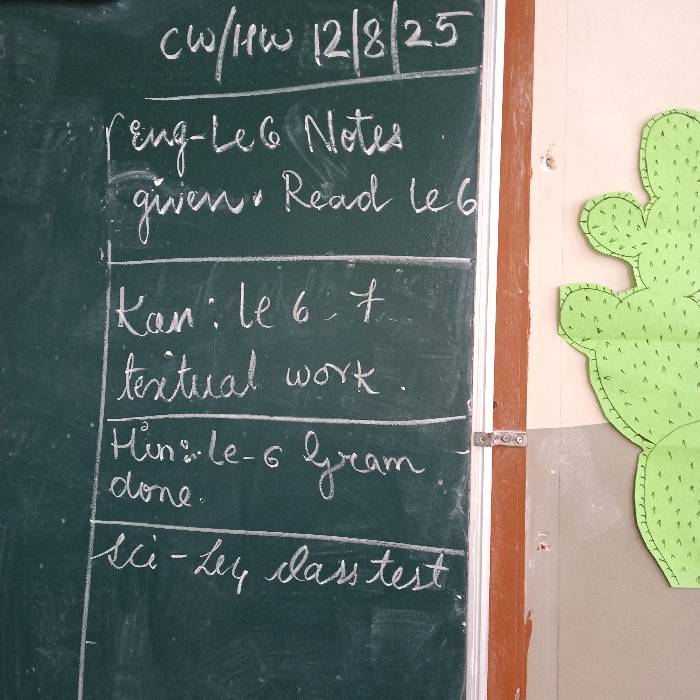 CW/HW 12/8/25
Eng-Le 6 Notes
given. Read Le 6
Kan: le 6. 7
textual work.
Hin:-Le-6 Gram
done.
Sci-Le4 class test